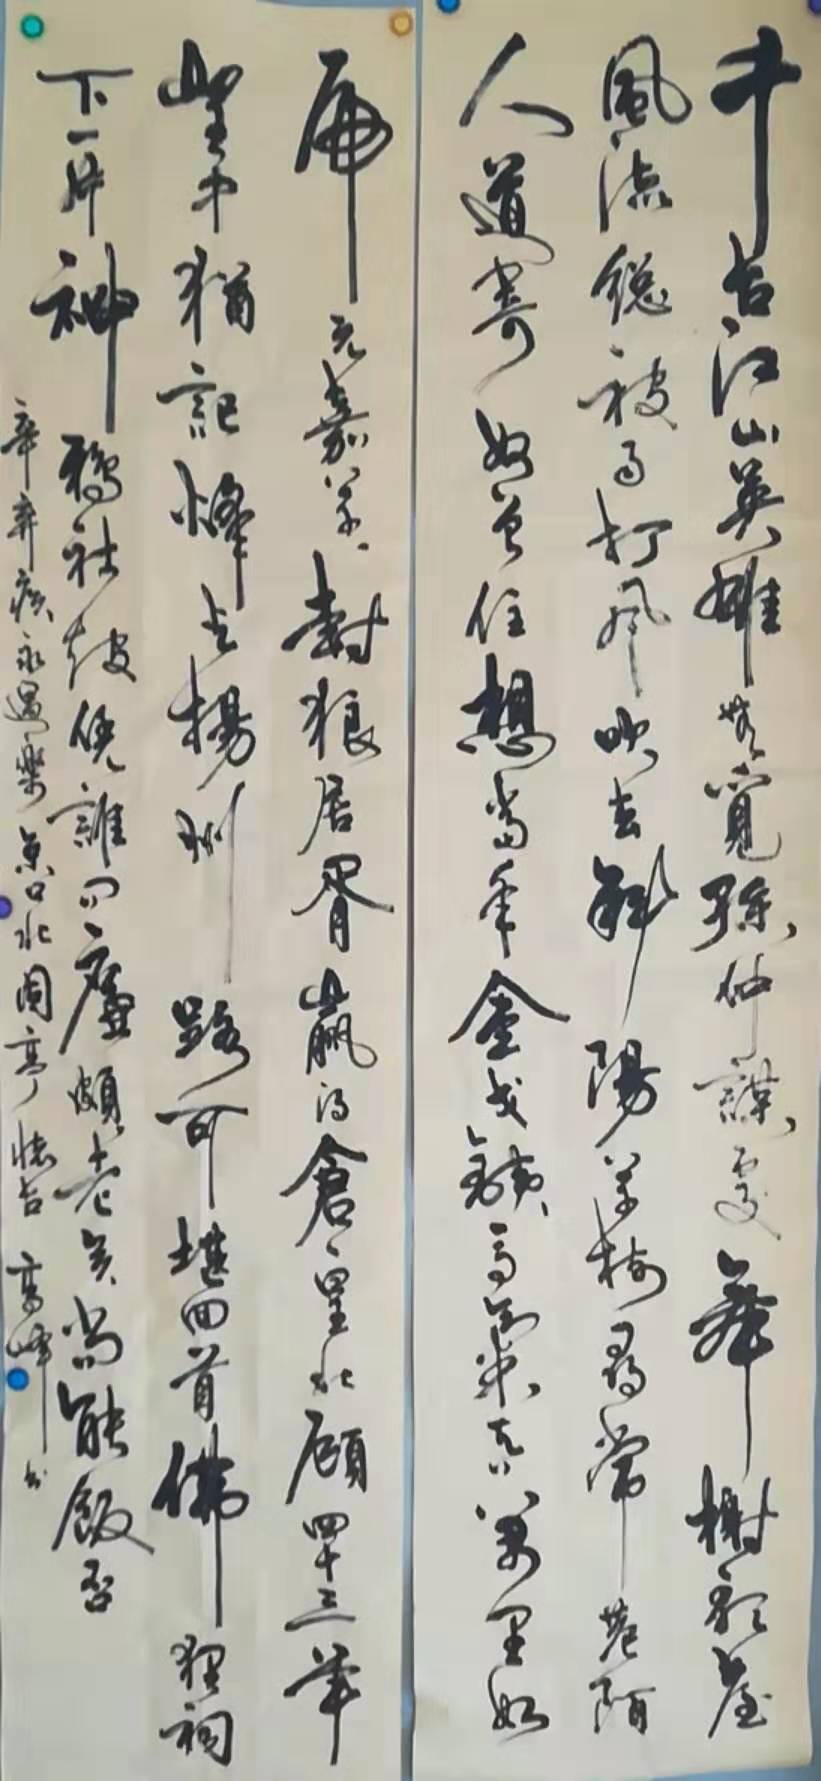 千古江山英雄無覓孫仲謀處舞榭歌臺
風流總被雨打風吹去斜陽草樹尋常巷陌
人道寄奴曾住想當年金戈鐵馬氣吞萬里如
虎元嘉草草封狼居胥贏得倉皇北顧四十三年
望中猶記烽火揚州路可堪回首佛狸祠
下一片神鴉社鼓憑誰問廉頗老矣尚能飯否
辛棄疾永遇樂京口北固亭懷古 高峰书